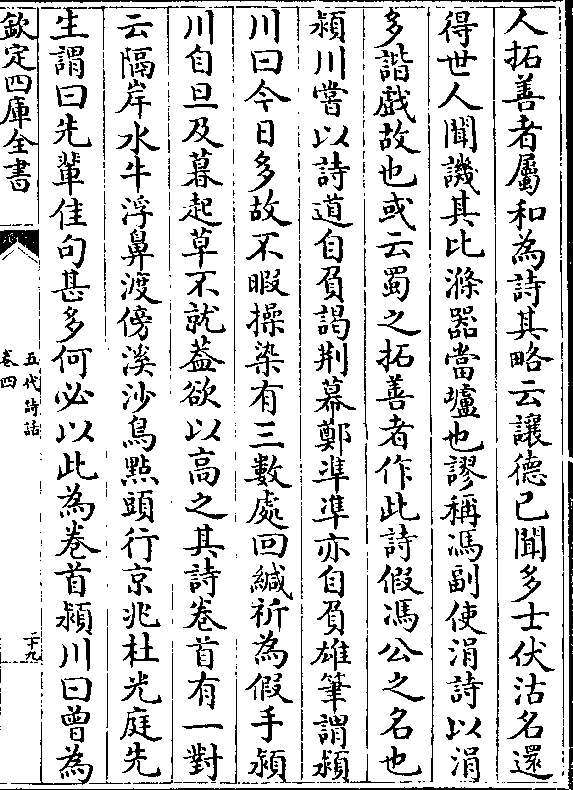 人拓善者屬和為詩其略云讓德已聞多士伏沽名還
得世人聞譏其比滌器當壚也謬稱馮副使涓詩以涓
多諧戲故也或云蜀之拓善者作此詩假馮公之名也
潁川嘗以詩道自負謁荆幕鄭準準亦自負雄筆謂潁
川曰今日多故不暇操染有三數處回緘祈為假手潁
川自旦及暮起草不就葢欲以高之其詩卷首有一對
云隔岸水牛浮鼻渡傍溪沙鳥點頭行京兆杜光庭先
生謂曰先輩佳句甚多何必以此為卷首潁川曰曾為
欽定四庫全書
五代詩話
卷四
二十九